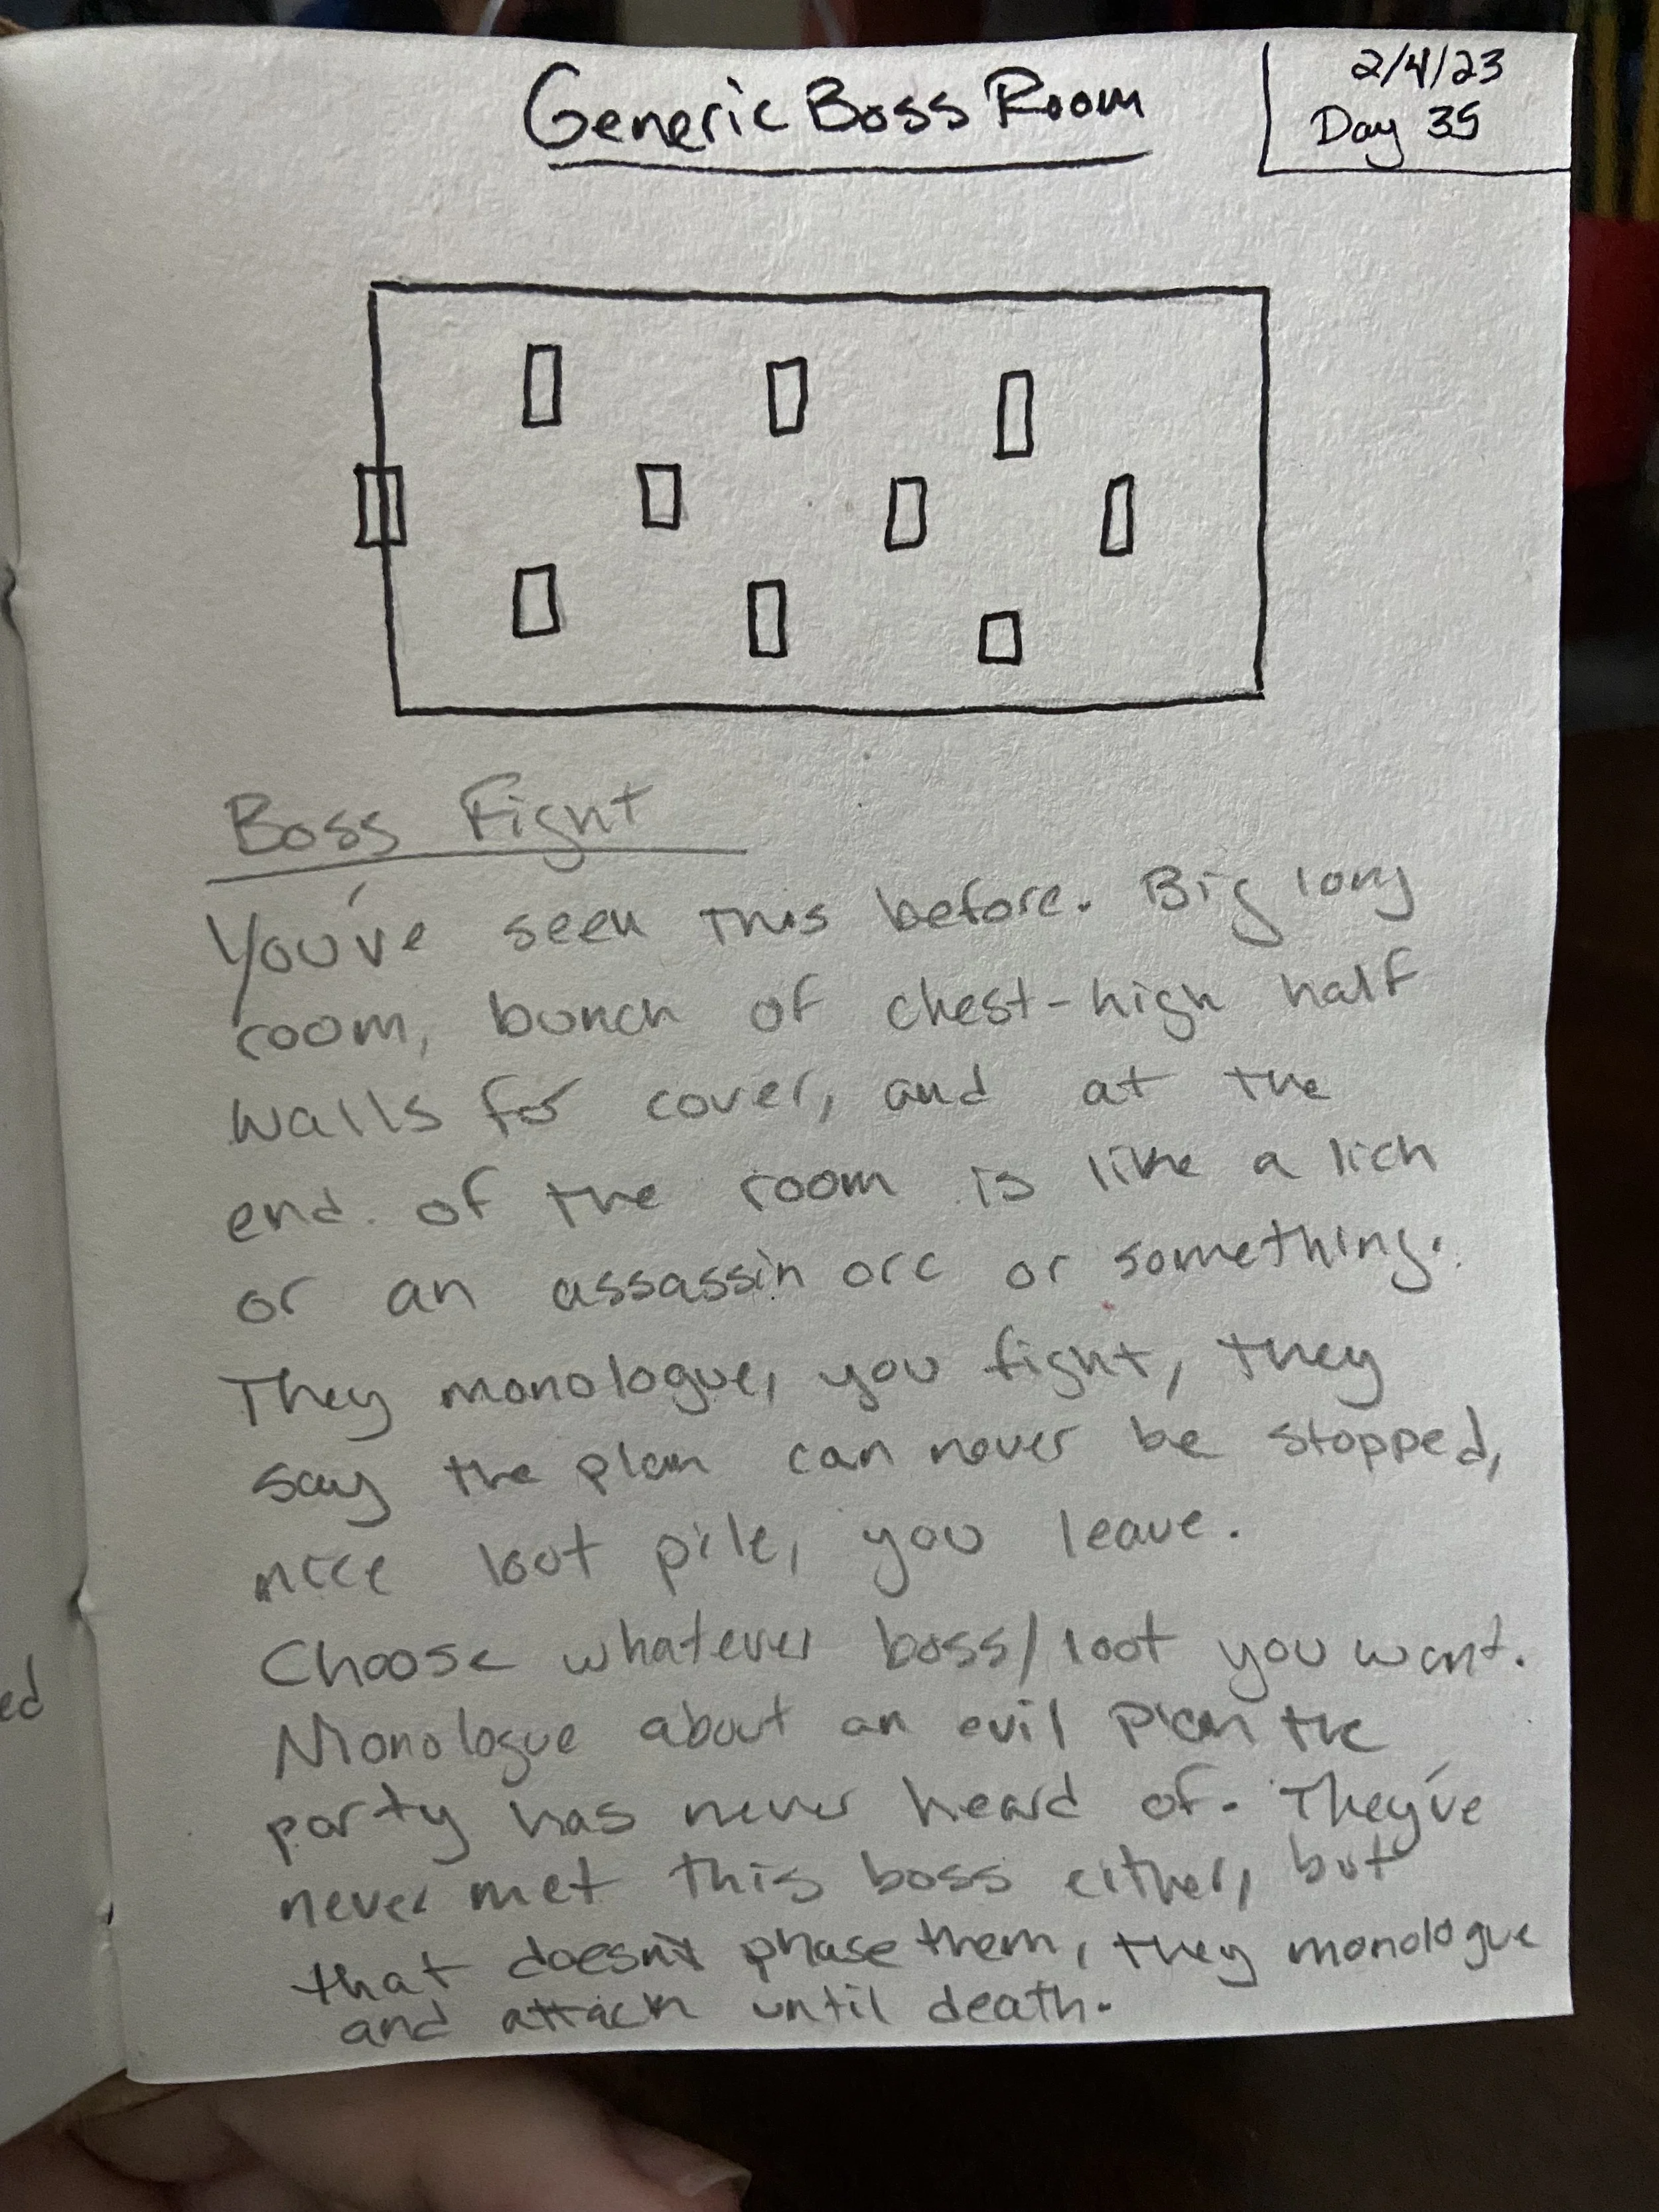 Generic Boss Room
2/4/23
Day 35
Boss Fight
You've seen this before. Big long
room, bunch of chest-high half
walls for cover, and at the
end of the room is like a lich
or an assassin orc or something.
They monologue, you fight, they
say the plan can never be stopped,
nice loot pile, you leave.
Choose whatever boss/loot you want.
Monologue about an evil plan the
party has never heard of. They've
never met this boss either, but
that doesn't phase them, they monologue
and attack until death.
ed